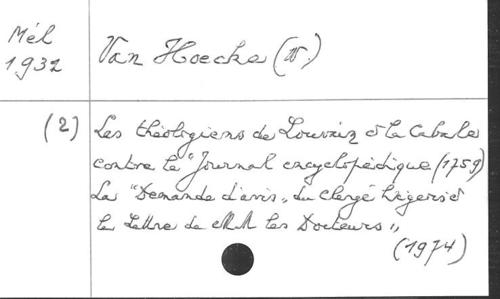 Mél
1932
Van Hoecke (W)
(2) Les théologiens de Louvain & la Cabale
contre le "Journal encyclopédique (1759)
La "Demande d'avis„ du clergé liégeois &
la Lettre de MM les Docteurs„
(1974)